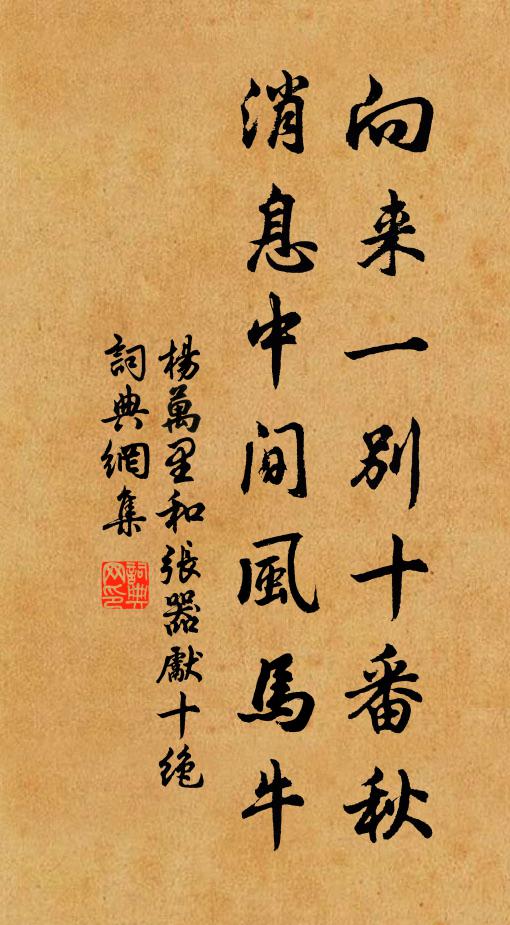 向来一别十番秋
消息中间風馬牛
楊萬里和張器獻十绝
詞典網集
詞典網印